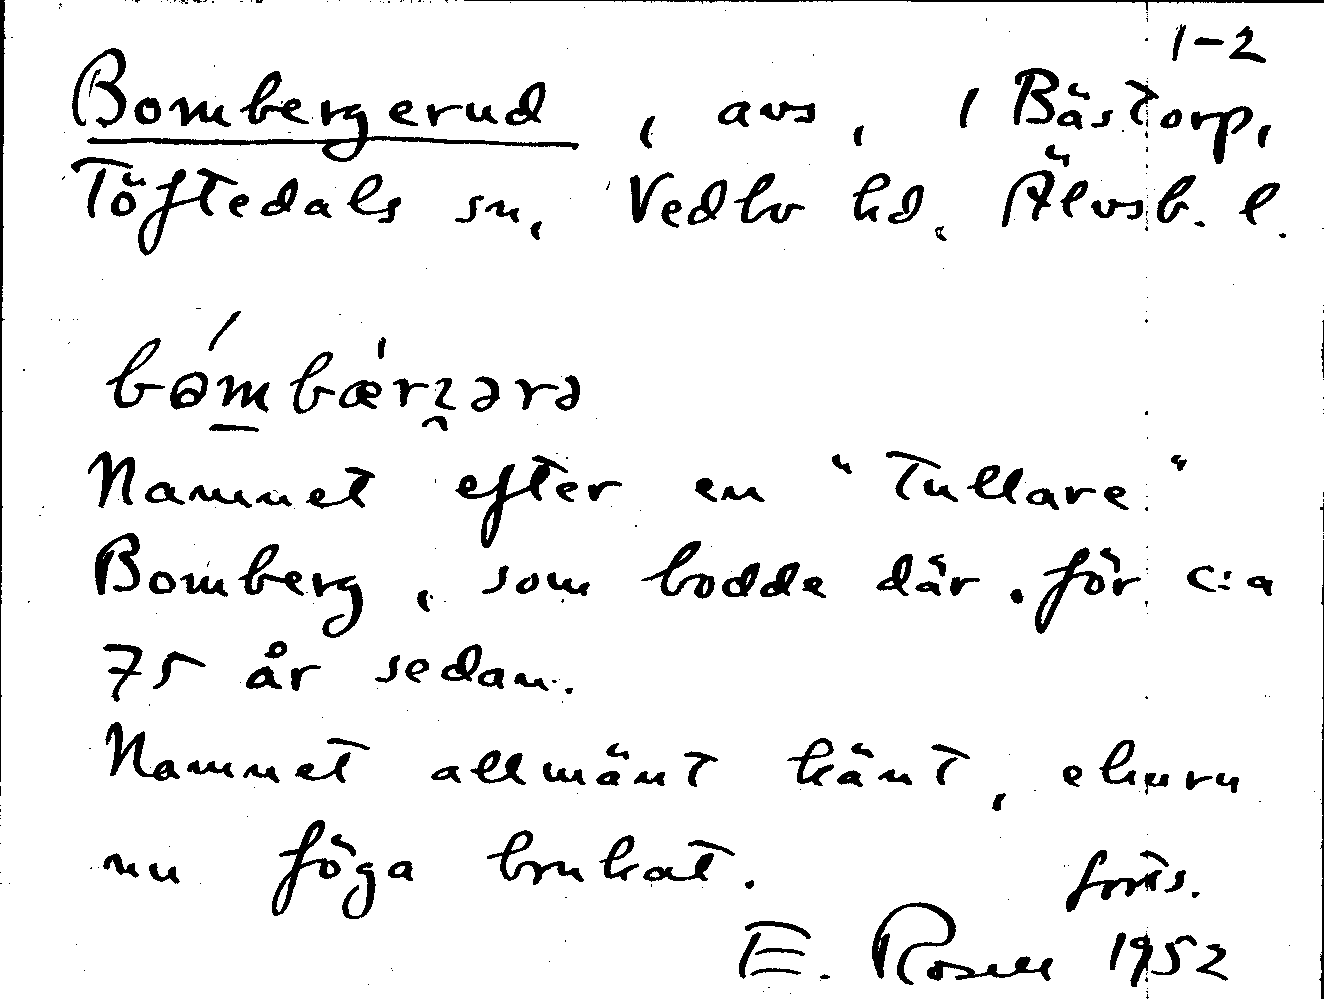 1-2
Bombergerud, avs, 1 Bästorp,
Töftedals sn, Vedbo hd, Älvsb. l.
Namnet efter en "Tullare"
Bomberg, som bodde där för c:a
75 år sedan.
Namnet allmänt känt, ehuru
nu föga brukat.
forts.
E. Rosell 1952